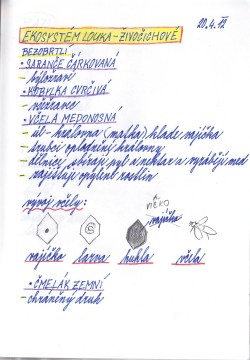 20.4.12
EKOSYSTÉM LOUKA - ŽIVOČICHOVÉ
BEZOBRTLÍ
• SARANČE ČÁRKOVANÁ
- býložravci
• KOBYLKA CVRČIVÁ
- všežravec
• VČELA MEDONOSNÁ
- úl - královna (matka) klade vajíčka
- trubci oplodnění královny
- dělnice sbírají pyl a nektar a vyrábějí med
- zajišťuje opylení rostlin
vývoj včely:
VÍČKO
vajíčko
vajíčko larva kukla včela
• ČMELÁK ZEMNÍ
- chráněný druh